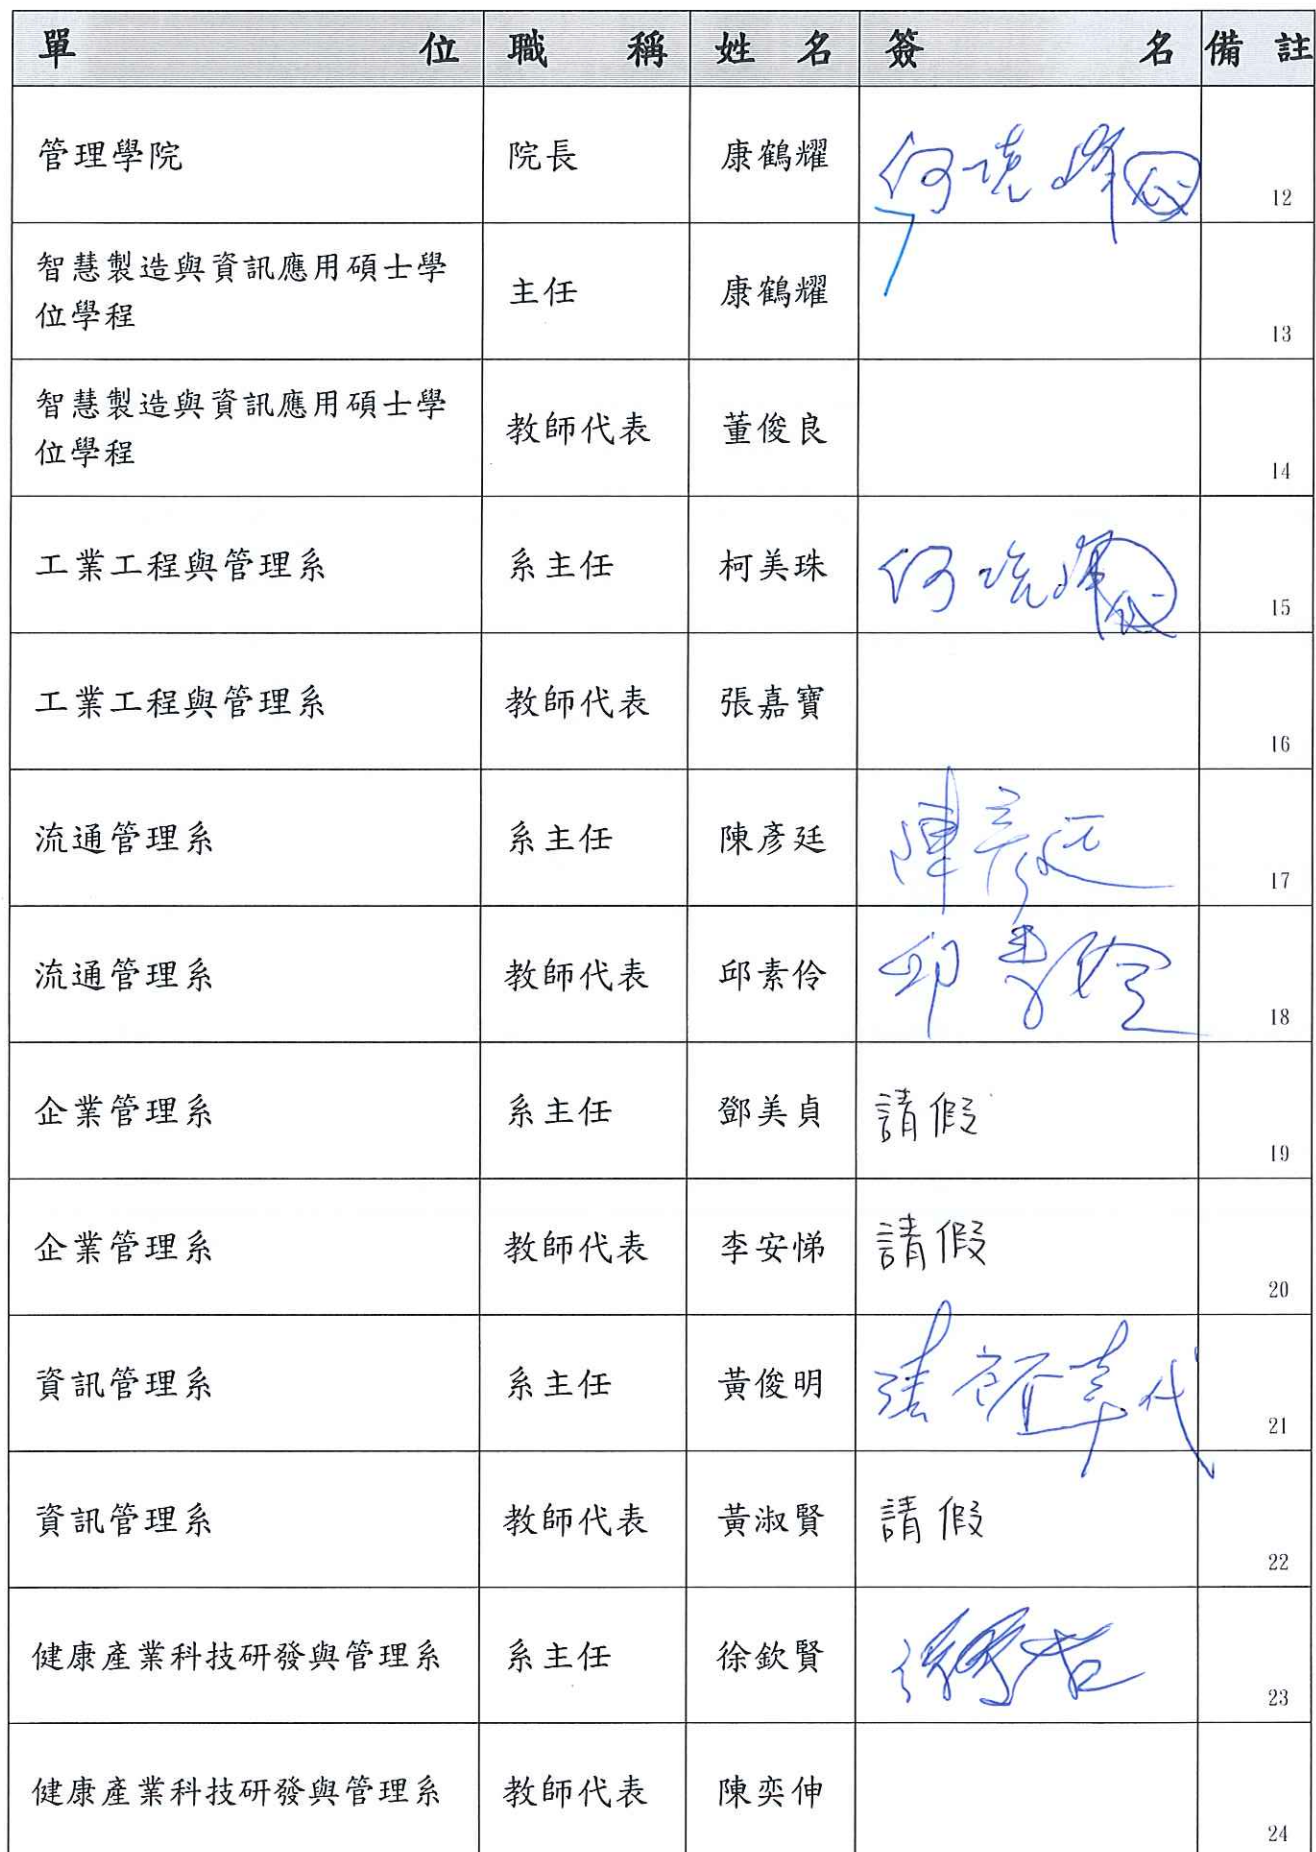 單位 職稱 姓名 簽名 備註
管理學院 院長 康鶴耀 12
智慧製造與資訊應用碩士學
位學程 主任 康鶴耀 13
智慧製造與資訊應用碩士學
位學程 教師代表 董俊良 14
工業工程與管理系 系主任 柯美珠 15
工業工程與管理系 教師代表 張嘉寶 16
流通管理系 系主任 陳彥廷 陳彥廷 17
流通管理系 教師代表 邱素伶 邱素伶 18
企業管理系 系主任 鄧美貞 請假 19
企業管理系 教師代表 李安悌 請假 20
資訊管理系 系主任 黃俊明 代 21
資訊管理系 教師代表 黃淑賢 請假 22
健康產業科技研發與管理系 系主任 徐欽賢 23
健康產業科技研發與管理系 教師代表 陳奕伸 24